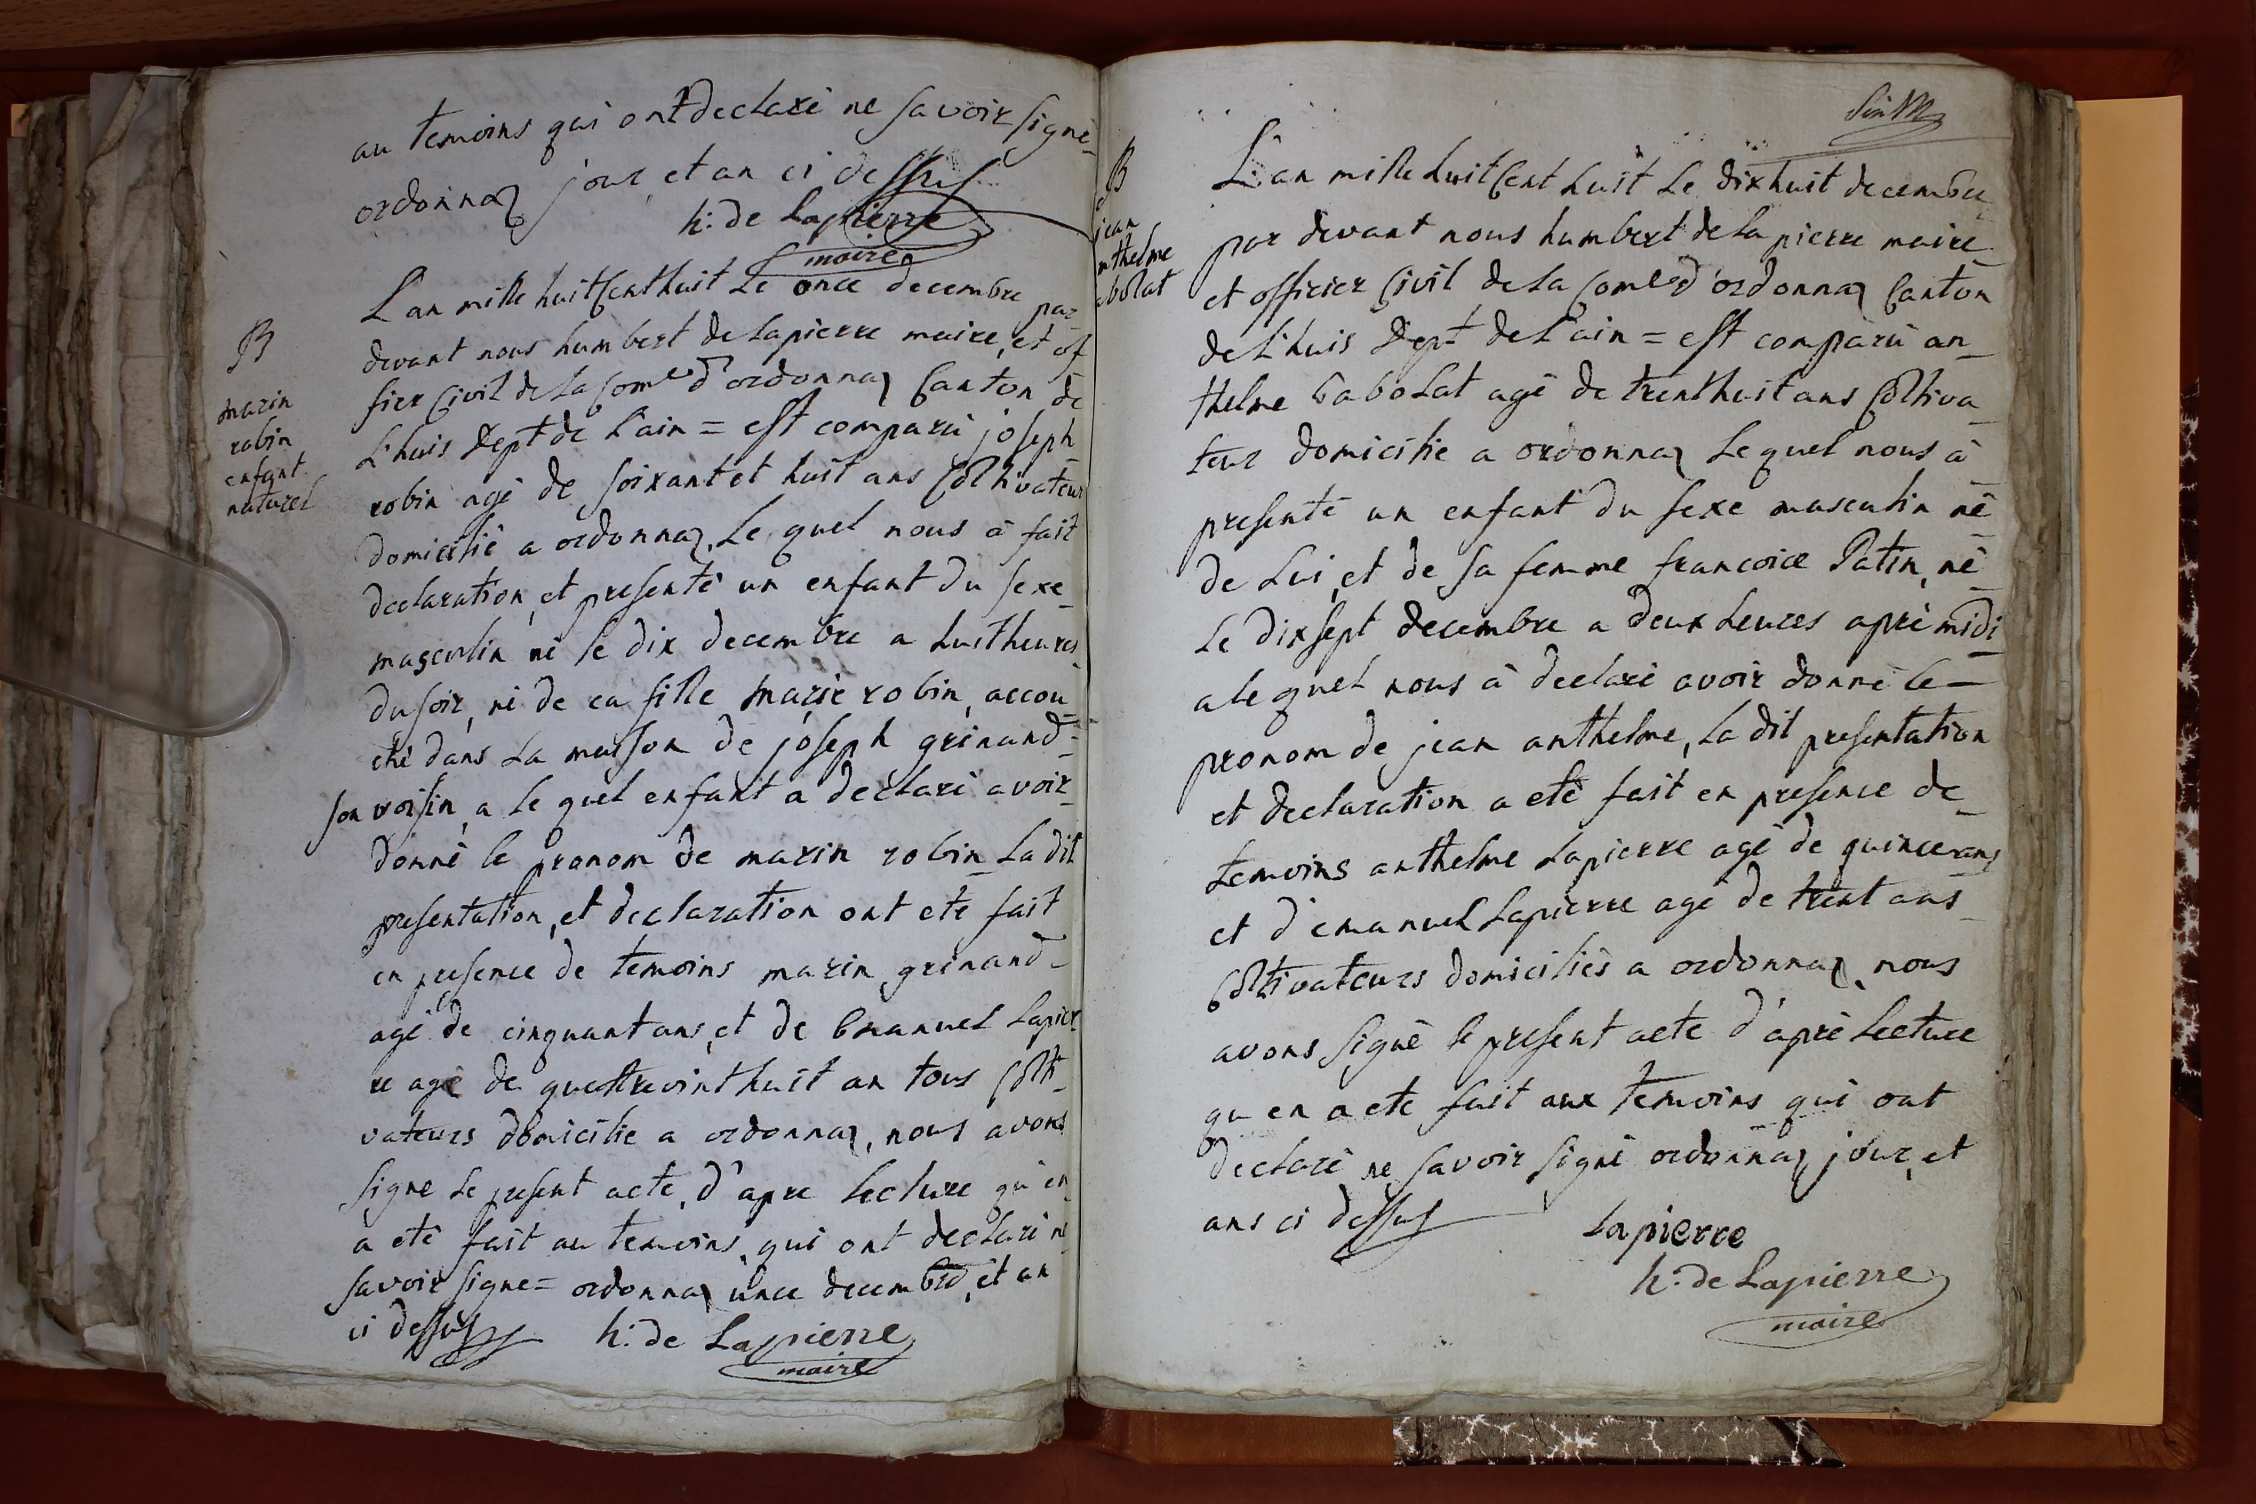 au temoins qui ont declaré ne savoir signé
ordonnaz jour et an ci dessus
h: de Lapierre
maire
B
marin
robin
enfant
naturel
L'an mille huit cent huit Le once decembre par
devant nous humbert de Lapierre maire, et of
fier Civil de La Com.e d'ordonnaz Canton de
L'huis Dept de L'ain = est comparu joseph
robin agé de soixant et huit ans Coltivateur
domicilié a ordonnaz, Le quel nous à fait
declaration, et presenté un enfant du sexe
masculin né le dix decembre a huit heures
du soir, né de ca fille marie robin, accou
ché dans La maison de joseph grinand
son voisin, a le quel enfant a declaré avoir
donné le pronom de marin robin La dit
presentation, et declaration ont eté fait
en presence de temoins marin grinand
agé de cinquant ans, et de Emanuel Lapier
re agé de quattrevint huit an tous Colti
vateurs domicilie a ordonnaz, nous avons
signe Le present acte, d'apre Lecture qu'en
a eté fait au temoins, qui ont declaré ne
savoir signe = ordonnaz once decembre, et an
ci dessus
h: de Lapierre
maire
B
jean
nthelme
abolat
L'an mille huit Cent huit Le dix huit decembre
par devant nous humbert de La pierre maire
et officier Civil de La Com.e d'ordonnaz Canton
de L'huis Dept de L'ain = est comparu an
thelme babolat agé de trent huit ans Coltiva
teur domicilié a ordonnaz Le quel nous à
presenté un enfant du sexe masculin né
de Lui, et de sa femme francoice Patin, né
Le dix sept decembre a deux heures apré midi
a le quel nous à declaré avoir donné le
pronom de jean anthelme, La dit presentation
et declaration a eté fait en presence de
temoins anthelme Lapierre agé de quince ans
et d'emanuel Lapierre agé de trent ans
Coltivateurs domiciliés a ordonnaz, nous
avons signé le present acte d'apré Lecture
qu en a eté fait aux temoins qui ont
declaré ne savoir signé ordonnaz jour, et
ans ci dessus
Lapierre
h: de Lapierre
maire